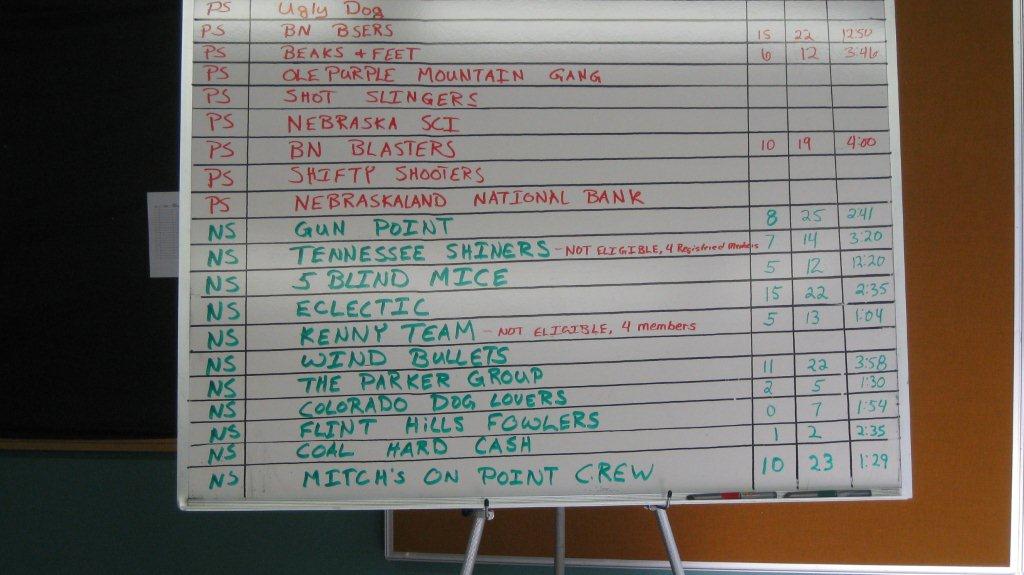 PS Ugly Dog
PS BN BSERS 15 22 12:50
PS BEAKS + FEET 6 12 3:46
PS OLE PURPLE MOUNTAIN GANG
PS SHOT SLINGERS
PS NEBRASKA SCI
PS BN BLASTERS 10 19 4:00
PS SHIFTY SHOOTERS
PS NEBRASKALAND NATIONAL BANK
NS GUN POINT 8 25 2:41
NS TENNESSEE SHINERS - NOT ELIGIBLE, 4 Registried Members 7 14 3:20
NS 5 BLIND MICE 5 12 12:20
NS ECLECTIC 15 22 2:35
NS KENNY TEAM - NOT ELIGIBLE, 4 members 5 13 1:04
NS WIND BULLETS
NS THE PARKER GROUP 11 22 3:58
NS COLORADO DOG LOVERS 2 5 1:30
NS FLINT HiLLS FOWLERS 0 7 1:54
NS COAL HARD CASH 1 2 2:35
NS MITCH'S ON POINT CREW 10 23 1:29